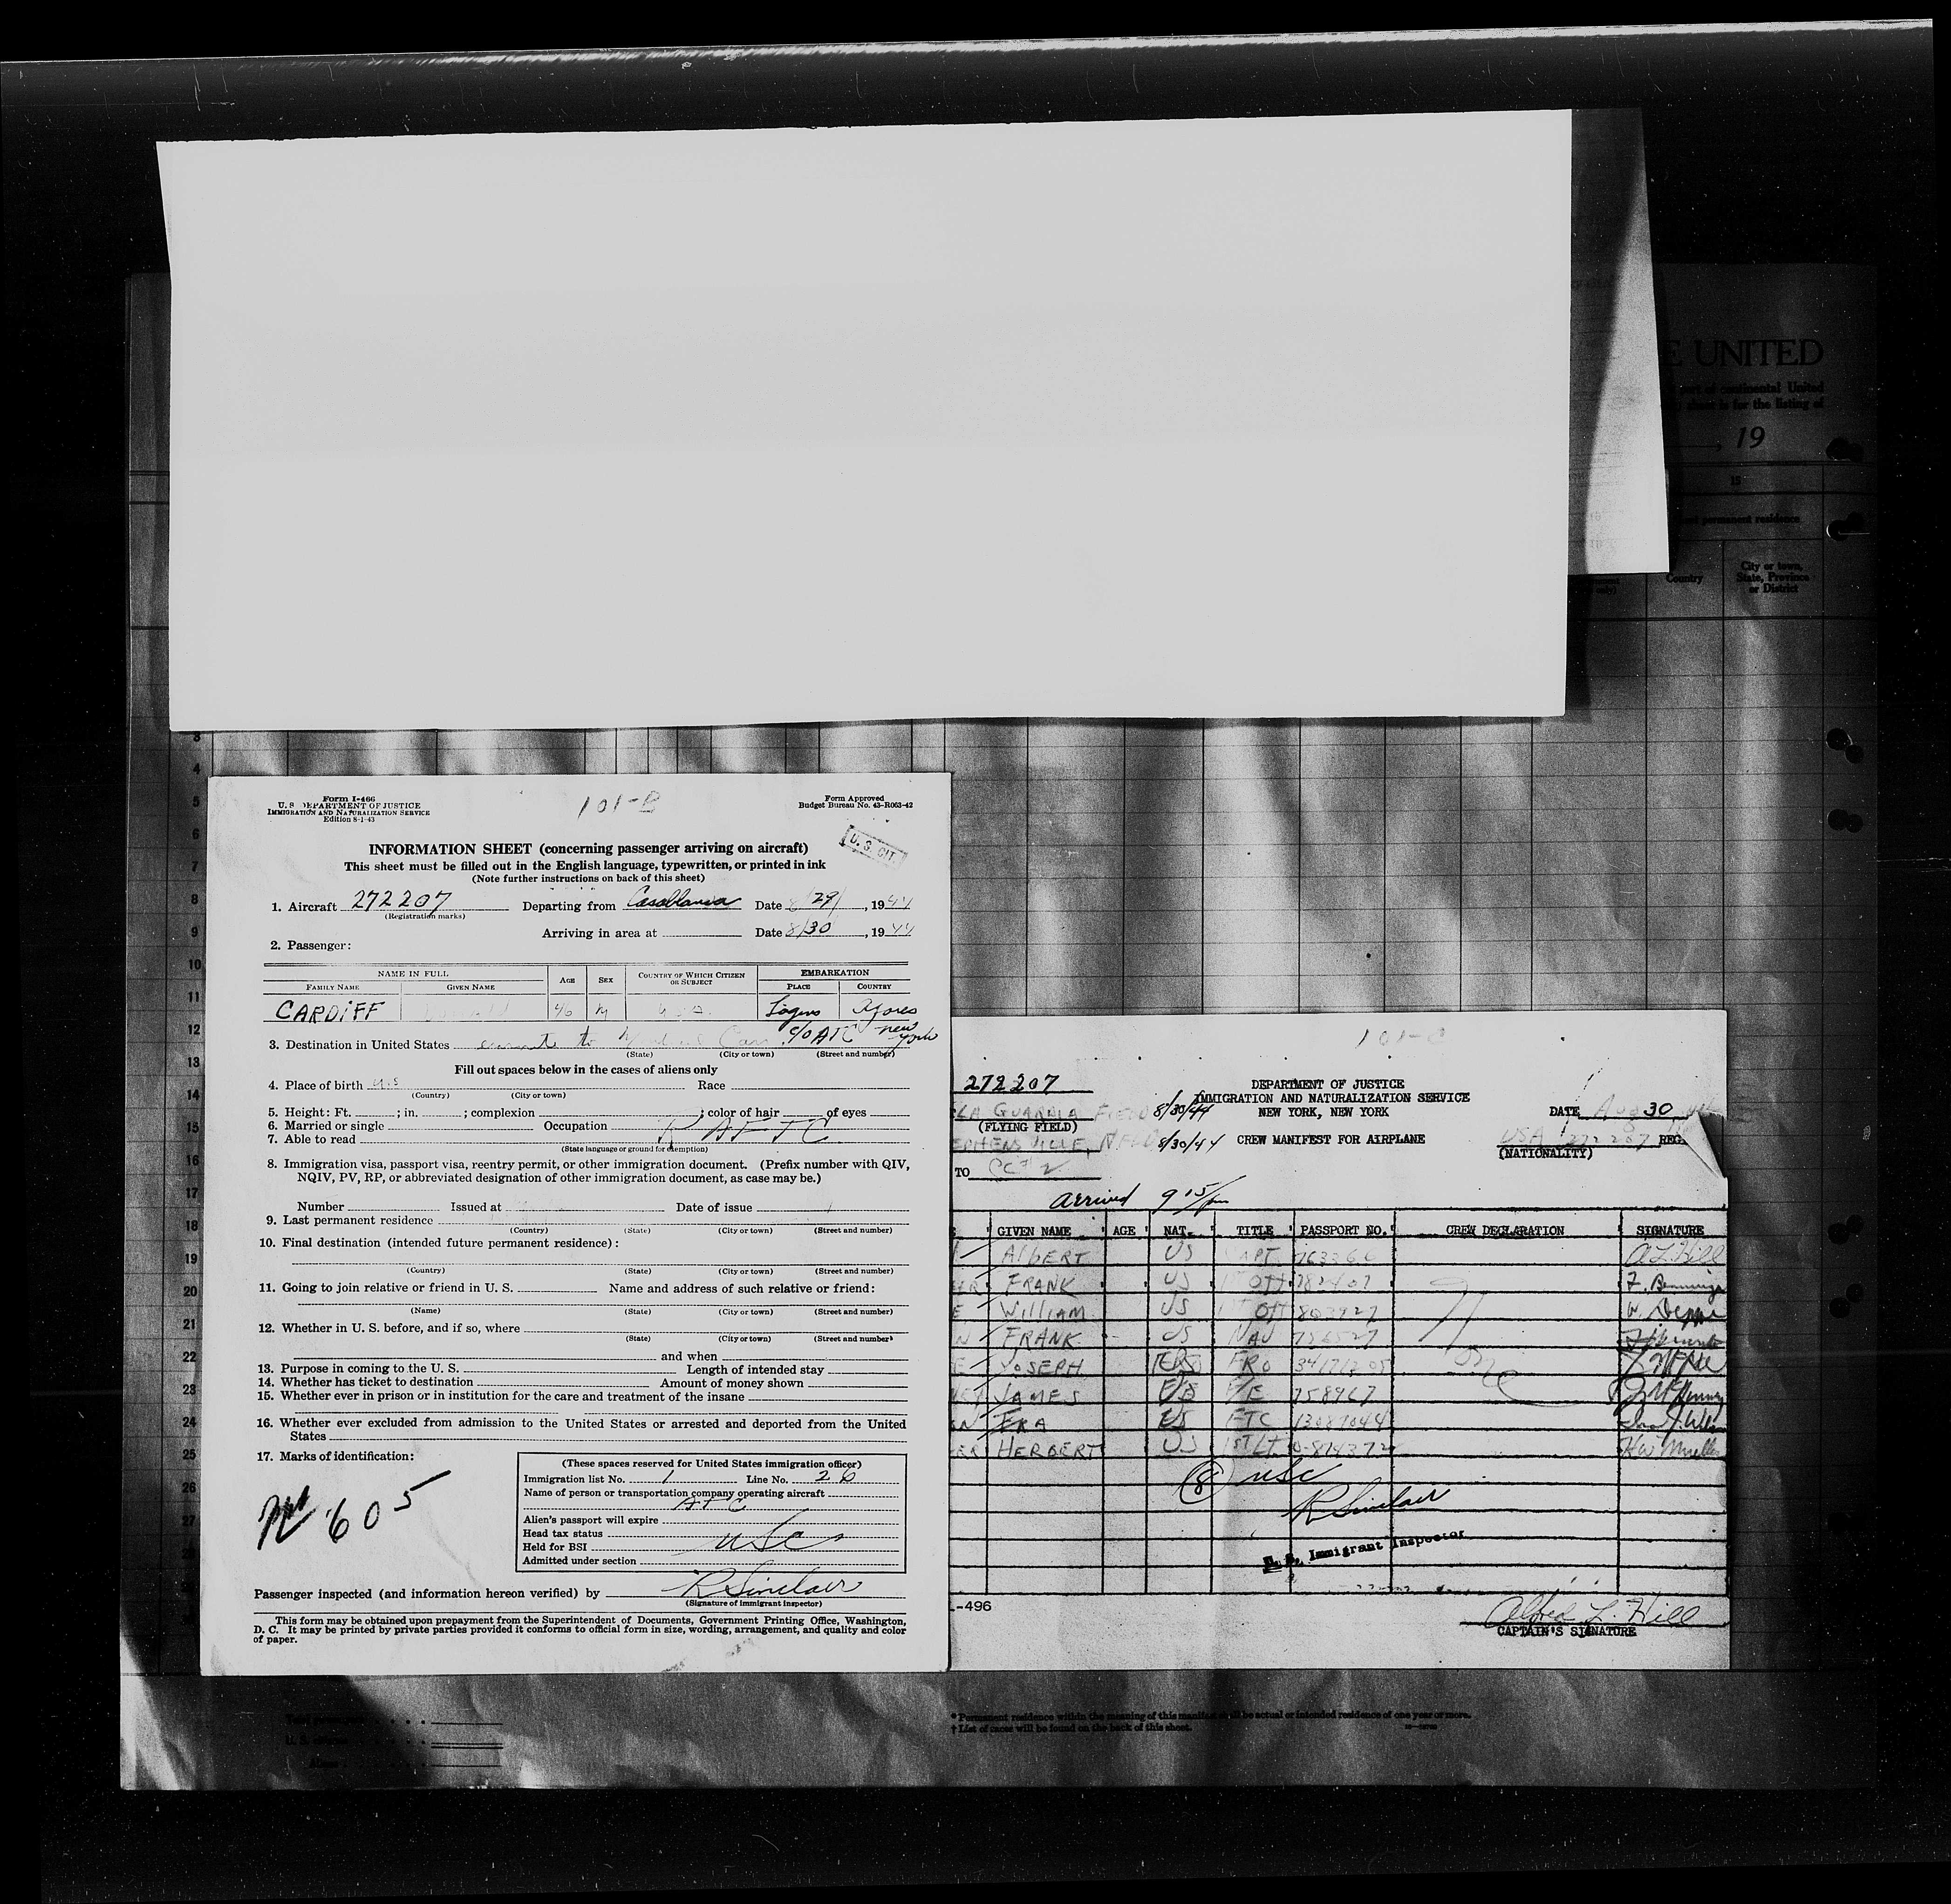 E UNITED
port of continental United
sheet is for the listing of
, 19
15
permanent residence
Country
City or town,
State, Province
or District
3
4
5
6
7
8
9
10
11
12
13
14
15
16
17
18
19
20
21
22
23
24
25
26
27
Form I-466
U. S. DEPARTMENT OF JUSTICE
IMMIGRATION AND NATURALIZATION SERVICE
Edition 8-1-43
101-B
Form Approved
Budget Bureau No. 43-R063-42
U. S. CIT.
INFORMATION SHEET (concerning passenger arriving on aircraft)
This sheet must be filled out in the English language, typewritten, or printed in ink
(Note further instructions on back of this sheet)
1. Aircraft 272207 Departing from Casablanca Date 8/29/, 1944
(Registration marks)
Arriving in area at Date 8/30, 1944
2. Passenger:
NAME IN FULL AGE SEX COUNTRY OF WHICH CITIZEN OR SUBJECT EMBARKATION
FAMILY NAME GIVEN NAME PLACE COUNTRY
CARDIFF 46 M Lagens Azores
3. Destination in United States to c/o ATC New York
(State) (City or town) (Street and number)
Fill out spaces below in the cases of aliens only
4. Place of birth U.S Race
(Country) (City or town)
5. Height: Ft. ; in. ; complexion ; color of hair of eyes
6. Married or single Occupation
7. Able to read
(State language or ground for exemption)
8. Immigration visa, passport visa, reentry permit, or other immigration document. (Prefix number with QIV,
NQIV, PV, RP, or abbreviated designation of other immigration document, as case may be.)
Number Issued at Date of issue
9. Last permanent residence
(Country) (State) (City or town) (Street and number)
10. Final destination (intended future permanent residence):
(Country) (State) (City or town) (Street and number)
11. Going to join relative or friend in U. S. Name and address of such relative or friend:
(Name) (State) (City or town) (Street and number)
12. Whether in U. S. before, and if so, where
(State) (City or town) (Street and number)
and when
13. Purpose in coming to the U. S. Length of intended stay
14. Whether has ticket to destination Amount of money shown
15. Whether ever in prison or in institution for the care and treatment of the insane
16. Whether ever excluded from admission to the United States or arrested and deported from the United
States
17. Marks of identification:
605
(These spaces reserved for United States immigration officer)
Immigration list No. 1 Line No. 26
Name of person or transportation company operating aircraft
ATC
Alien's passport will expire
Head tax status
Held for BSI USC
Admitted under section
Passenger inspected (and information hereon verified) by R Sinclair
(Signature of Immigrant Inspector)
This form may be obtained upon prepayment from the Superintendent of Documents, Government Printing Office, Washington,
D. C. It may be printed by private parties provided it conforms to official form in size, wording, arrangement, and quality and color
of paper.
272207
DEPARTMENT OF JUSTICE
IMMIGRATION AND NATURALIZATION SERVICE
NEW YORK, NEW YORK
LA GUARDIA FIELD 8/30/44
(FLYING FIELD)
DATE Aug 30
EPHENSVILLE, NFLD 8/30/44 CREW MANIFEST FOR AIRPLANE
USA 272207 REG.
(NATIONALITY)
TO
Arrived 9 15/pm
GIVEN NAME AGE NAT. TITLE PASSPORT NO. CREW DECLARATION SIGNATURE
ALBERT US CAPT. A L Hill
FRANK US
WILLIAM US
FRANK US NAV
JOSEPH FRO
JAMES F/E 758967
IRA US FTC 13087044
HERBERT US 1ST LT H W Mueller
(8) USC
R Sinclair
U. S. Immigrant Inspector
-496
Alfred L. Hill
CAPTAIN'S SIGNATURE
* Permanent residence within the meaning of this manifest shall be actual or intended residence of one year or more.
† List of races will be found on the back of this sheet.